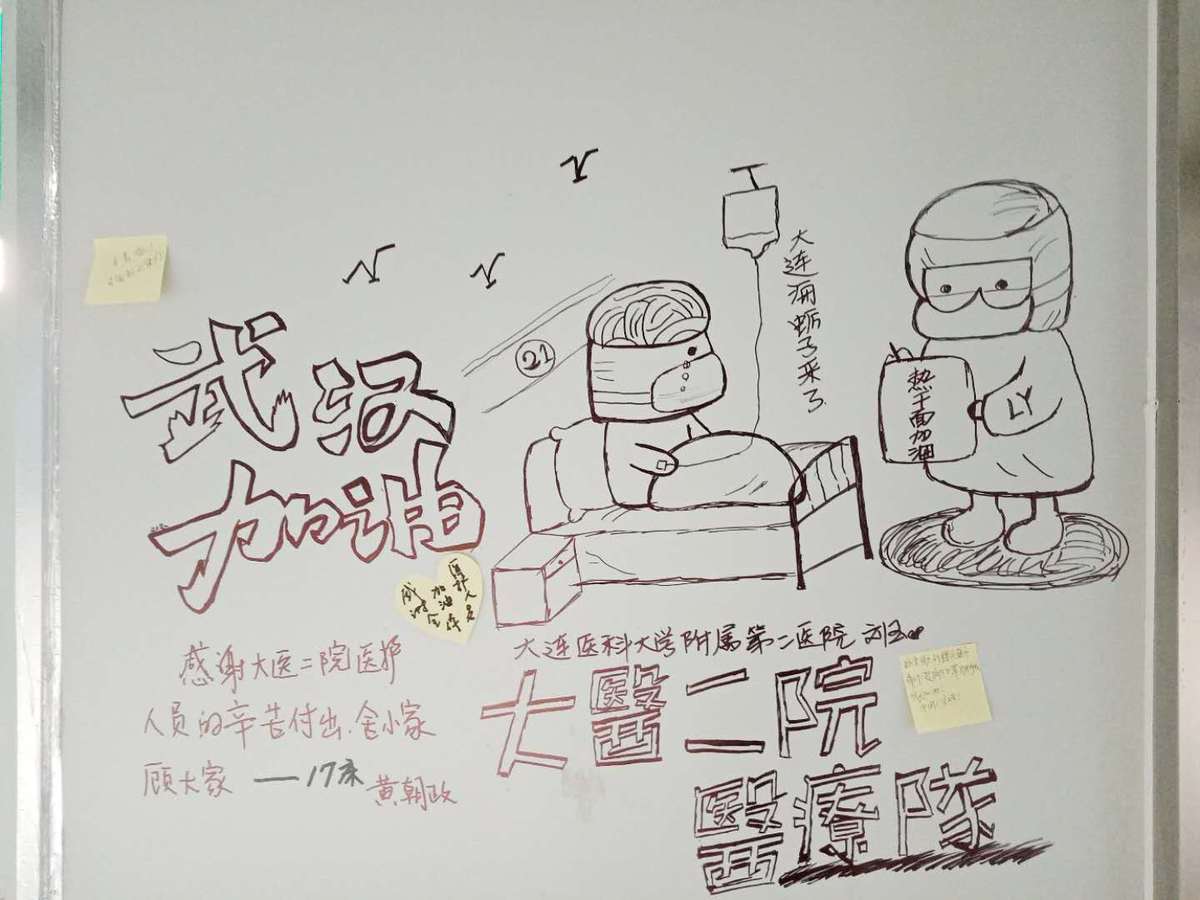 武汉
加油
21
大连海蛎子来了
热干面加油
LY
感谢
加油
医护人员
大连医科大学附属第二医院
大醫二院
醫療隊
感谢大医二院医护
人员的辛苦付出.舍小家
顾大家 —— 17床 黄朝政